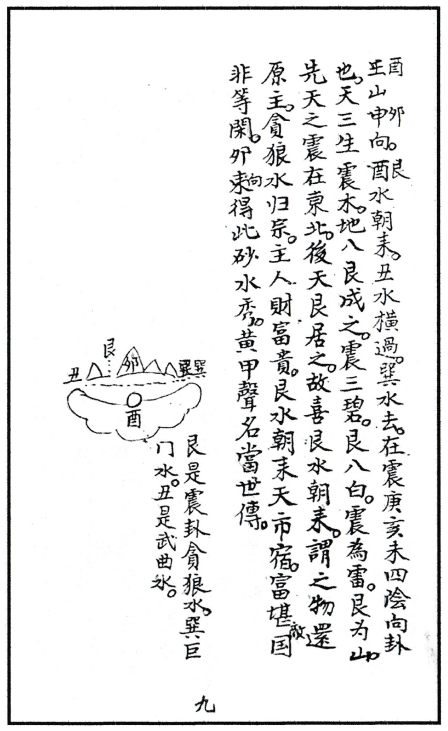 酉 卯 艮
壬山申向。酉水朝来。丑水横過。巽水去。在震庚亥未四陰向卦
也。天三生震木。地八艮成之。震三碧。艮八白。震為雷。艮为山。
先天之震在東北。後天艮居之。故喜艮水朝来。謂之物還
原主。貪狼水归宗。主人財富貴。艮水朝来天市宿。富堪敵国
非等閑。卯向来得此砂水秀。黄甲聲名當世傳。
艮
丑
卯
巽
酉
艮是震卦貪狼水。巽巨
门水。丑是武曲水。
九